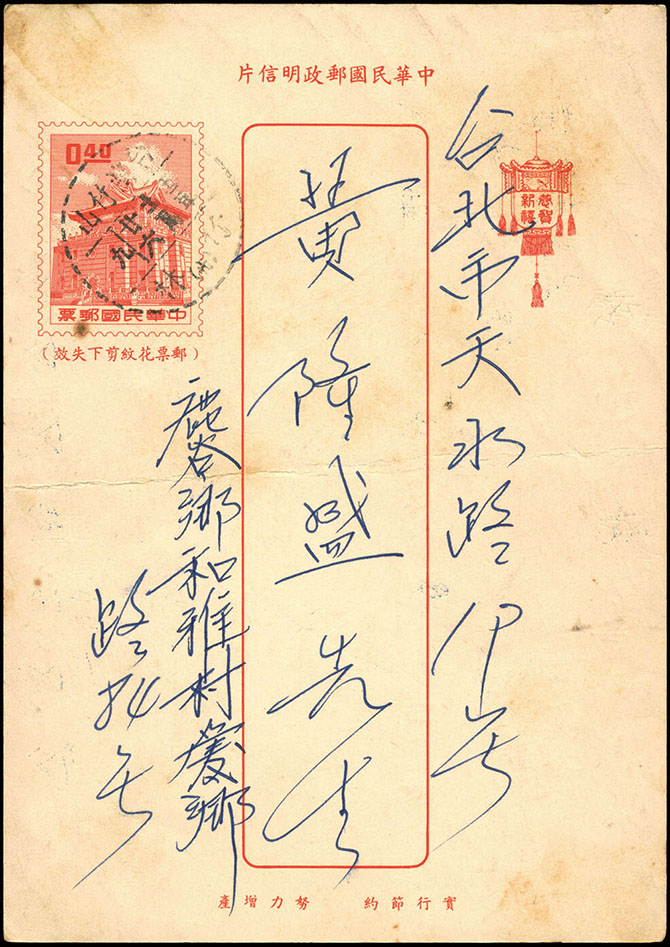 中華民國郵政明信片
0.40
中華民國郵票
(郵票花紋剪下失效)
恭賀
新禧
台北市天水路
黃隆盛先生
鹿谷鄉和雅村愛鄉
路
竹山
實行節約 努力增產